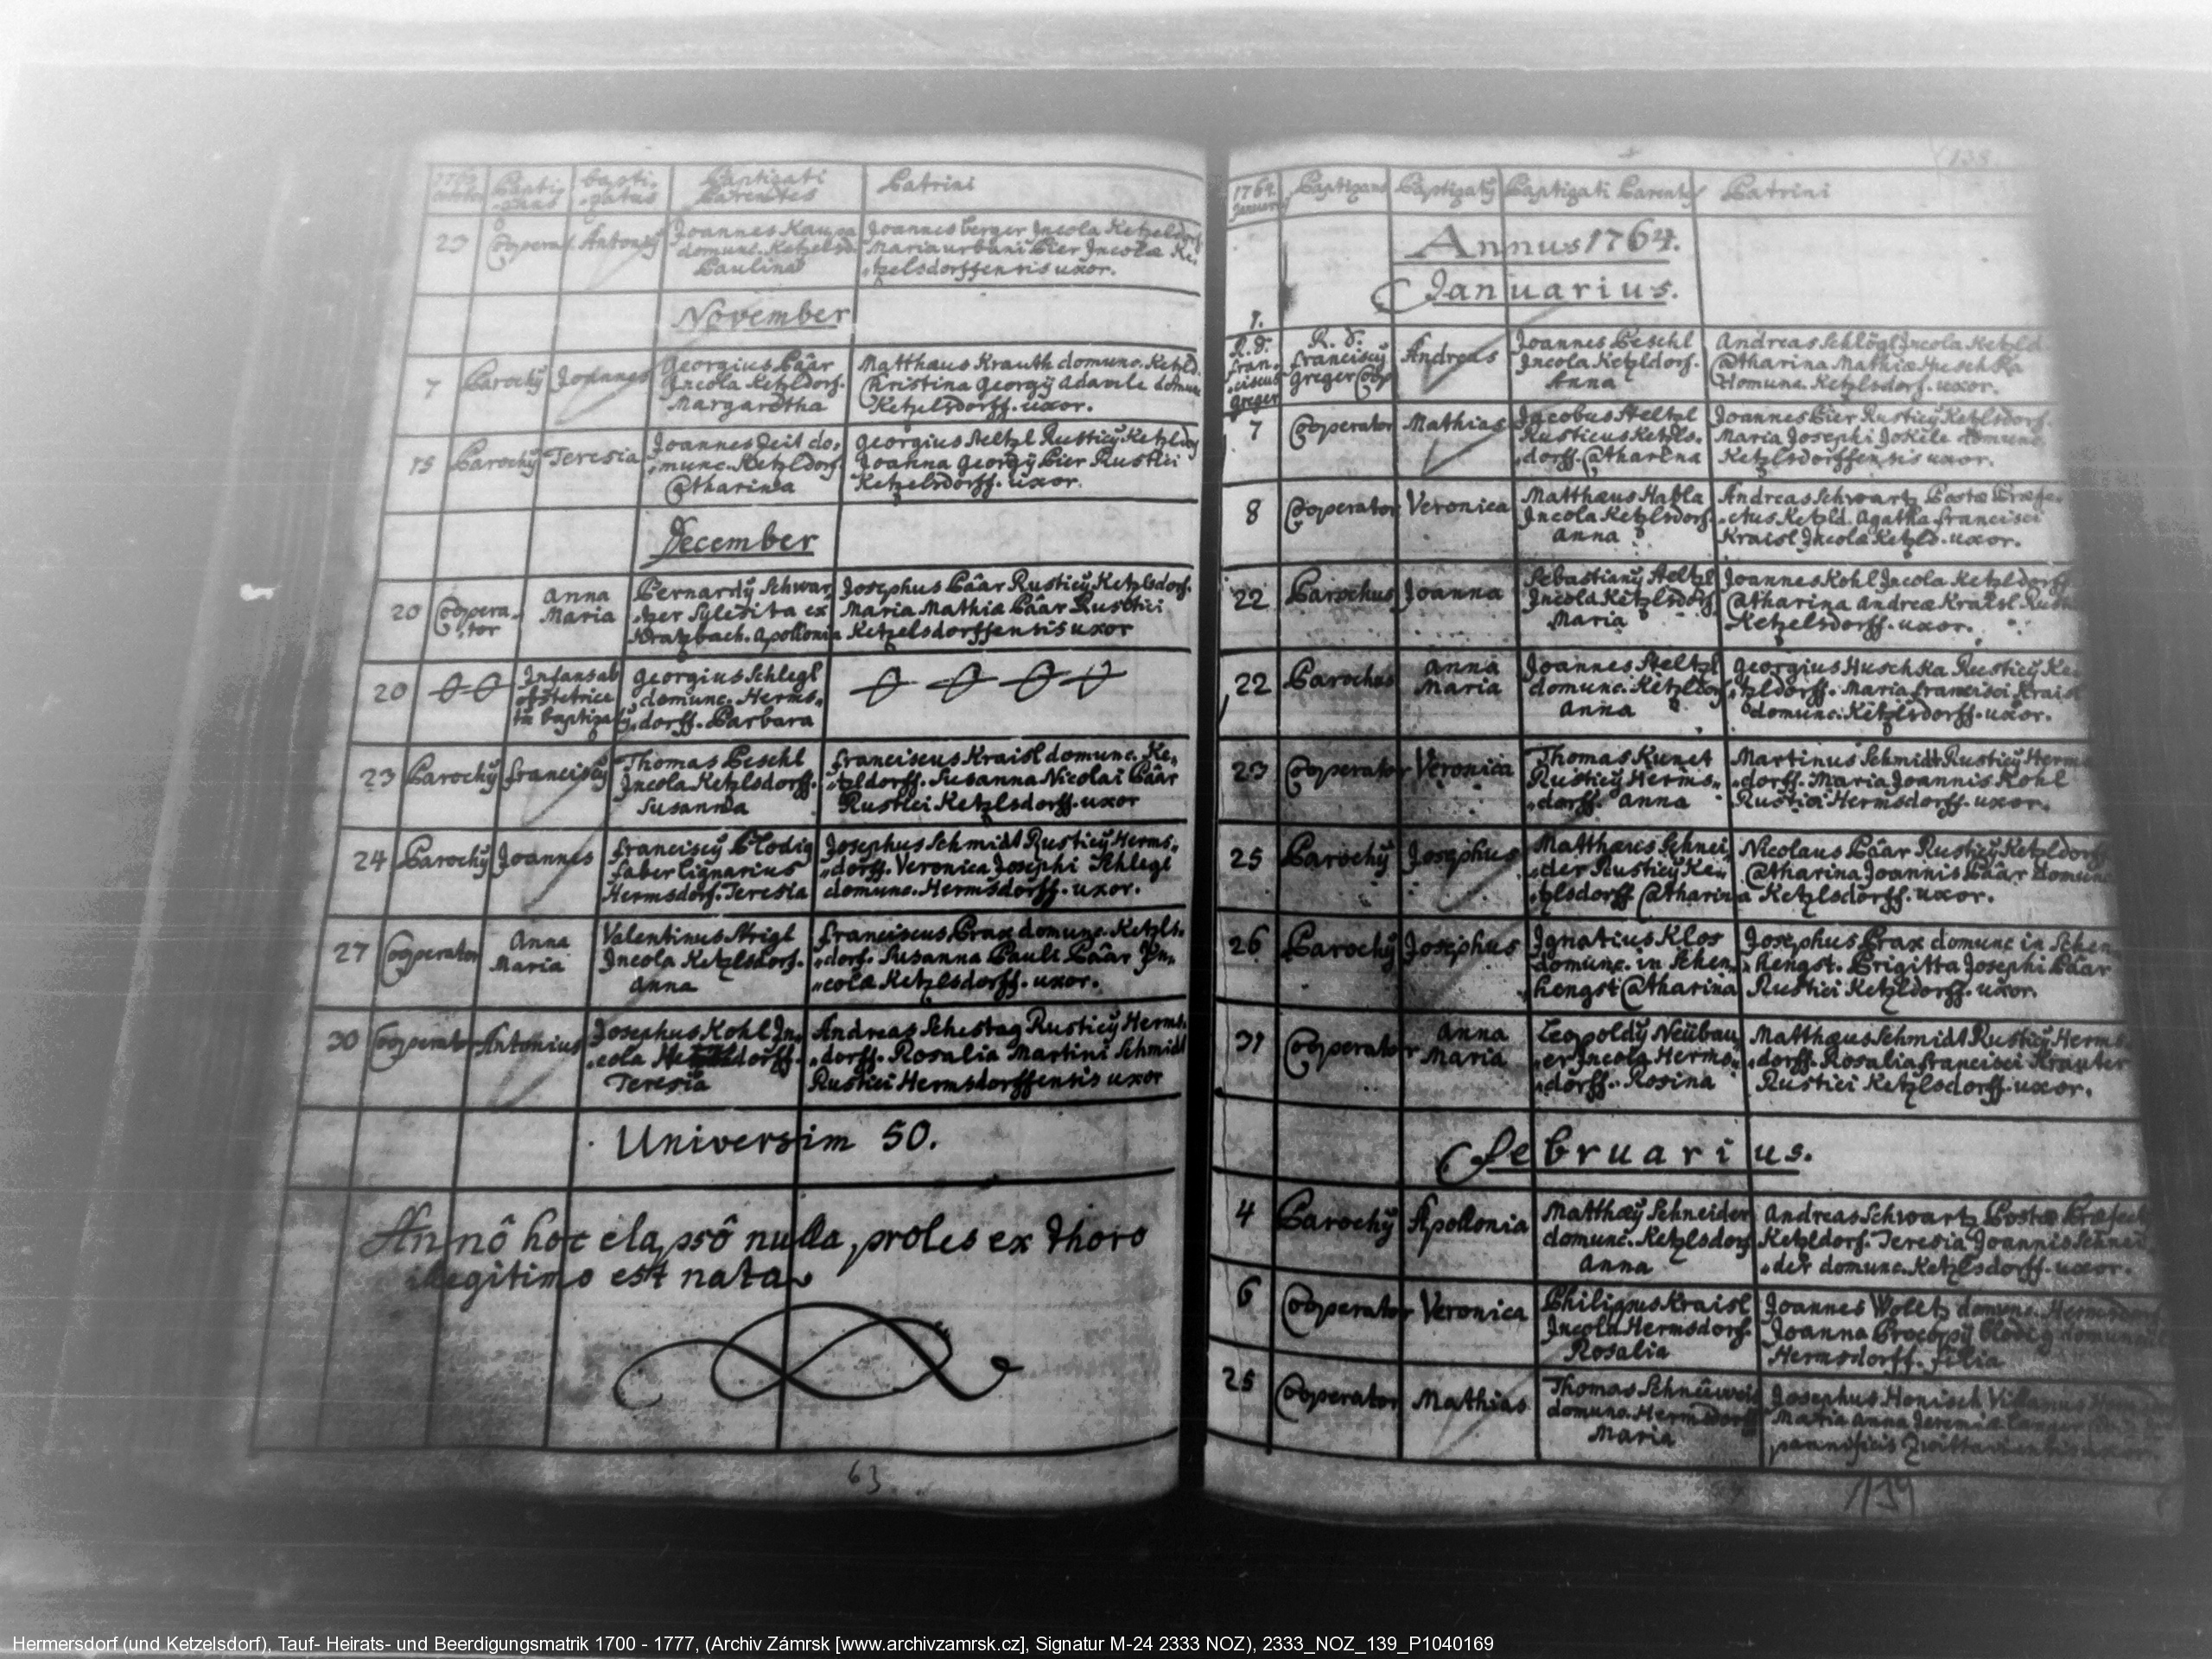 1763 October
Bapti-
-zans
bapti-
-zatus
Baptizati
Parentes
Patrini
23
Cooperat.
Antonÿ
Joannes
domunc. Ketzelsd.
Paulina
Joannes berger Incola Ketzelsdorf
Maria urbani Bier Incolæ Ke,
,tzelsdorffensis uxor.
November
7
Parochÿ
Joannes
Georgius Bäar
Incola Ketzldorf.
Margaretha
Matthæus Krauth domunc. Ketzld.
Christina Georgÿ Adamle domunc
Ketzelsdorff. uxor.
15
Parochÿ
Teresia
Joannes Zeit do,
,munc. Ketzldorf.
Catharina
Georgius Steltzl Rusticÿ Ketzldorf
Joanna Georgÿ Bier Rustici
Ketzelsdorff. uxor.
December
20
Coopera-
,tor
Anna
Maria
Bernardÿ Schwar,
,tzer Sylesita ex
Kratzbach. Apollonia
Josephus Bäar Rusticÿ Ketzlsdorf.
Maria Mathiæ Bäar Rustici
Ketzelsdorffensis uxor
20
Infans ab
obstetrice
baptizatÿ
Georgius Schlegl
domunc. Herms,,
,,dorff. Barbara
23
Parochÿ
Franciscÿ
Thomas Peschl
Incola Ketzlsdorff.
Susanna
Franciscus Kraisl domunc. Ke,,
,,tzldorff. Susanna Nicolai Bäar
Rustici Ketzlsdorff. uxor
24
Parochÿ
Joannes
Franciscÿ Blodig
faber lignarius
Hermsdorf. Teresia
Josephus Schmidt Rusticÿ Herms,,
,,dorff. Veronica Josephi Schlegl
domunc. Hermsdorff. uxor.
27
Cooperator
Anna
Maria
Valentinus Strigl
Incola Ketzlsdorf.
Anna
Franciscus Prax domunc. Ketzls,
,,dorf. Susanna Pauli Bäar In,,
,,colæ Ketzlsdorff. uxor.
30
Cooperator
Antonius
Josephus Kohl In,
,cola dorff.
Teresia
Andreas Schestag Rusticÿ Herms,
,,dorff. Rosalia Martini Schmidt
Rustici Hermsdorffensis uxor
Universim 50.
Annô hoc elapsô nulla proles ex thoro
illegitimo est nata
63
1764.
Januarius
Baptizans
Baptizatÿ
Baptizati Parentes
Patrini
138
Annus 1764.
Januarius.
1.
R. D.
Fran,
,ciscus
Greger
R. D.
Franciscÿ
Greger Coop
Andreas
Joannes Peschl
Incola Ketzldorf.
Anna
Andreas Schlögl Incola Ketzld.
Catharina Mathiæ Huschka
domunc. Ketzlsdorf. uxor.
7
Cooperator
Mathias
Jacobus Steltzl
Rusticus Ketzls,
,dorff. Catharina
Joannes Bier Rusticÿ Ketzlsdorf.
Maria Josephi Jokele domunc.
Ketzlsdorffensis uxor.
8
Cooperator
Veronica
Matthæus Habla
Incola Ketzlsdorf.
Anna
Andreas Schwartz Postæ Præfe,
,ctus Ketzld. Agatha Francisci
Kraisl Incolæ Ketzld. uxor.
22
Parochus
Joanna
Sebastianÿ Steltzl
Incola Ketzlsdorf.
Maria
Joannes Kohl Incola Ketzldorff
Catharina Andreæ Kraisl Rustici
Ketzelsdorff. uxor.
22
Parochus
Anna
Maria
Joannes Steltzl
domunc. Ketzldorf
Anna
Georgius Huschka Rusticÿ Ke,
,tzldorff. Maria Francisci Kraisl
domunc. Ketzlsdorff. uxor.
23
Cooperator
Veronica
Thomas Kunet
Rusticÿ Herms,,
,,dorff. Anna
Martinus Schmidt Rusticÿ Herms
,,dorff. Maria Joannis Kohl
Rustici Hermsdorff. uxor.
25
Parochÿ
Josephus
Matthæus Schnei,
,,der Rusticÿ Ke,,
,tzlsdorff. Catharina
Nicolaus Bäar Rusticÿ Ketzldorff
Catharina Joannis Bäar domunc
Ketzlsdorff. uxor.
26
Parochÿ
Josephus
Ignatius Klos
domunc. in Schen,,
,hengst Catharina
Josephus Prax domunc in Schen,
,hengst. Brigitta Josephi Bäar
Rustici Ketzldorff. uxor.
31
Cooperator
Anna
Maria
Leopoldÿ Neübau,
,er Incola Herms,,
,,dorff. Rosina
Matthæus Schmidt Rusticÿ Herms,
,,dorff. Rosalia Francisci Krauter
Rustici Ketzlsdorff. uxor.
Februarius.
4
Parochÿ
Apollonia
Matthæÿ Schneider
domunc. Ketzlsdorf
Anna
Andreas Schwartz Postæ Præfectÿ
Ketzldorf. Teresia Joannis Schnei
,,der domunc. Ketzlsdorff. uxor.
6
Cooperator
Veronica
Philippus Kraisl
Incola Hermsdorf.
Rosalia
Joannes Woletz domunc. Hermsdorf
Joanna Procopÿ Blodig domunc
Hermsdorff. filia
25
Cooperator
Mathias
Thomas
domunc. Hermsdorff
Maria
Josephus Honisch Villanus
Maria Anna Jeremiæ Langer
pannificis Zwittaviensis uxor.
139
Hermersdorf (und Ketzelsdorf), Tauf- Heirats- und Beerdigungsmatrik 1700 - 1777, (Archiv Zámrsk [www.archivzamrsk.cz], Signatur M-24 2333 NOZ), 2333_NOZ_139_P1040169